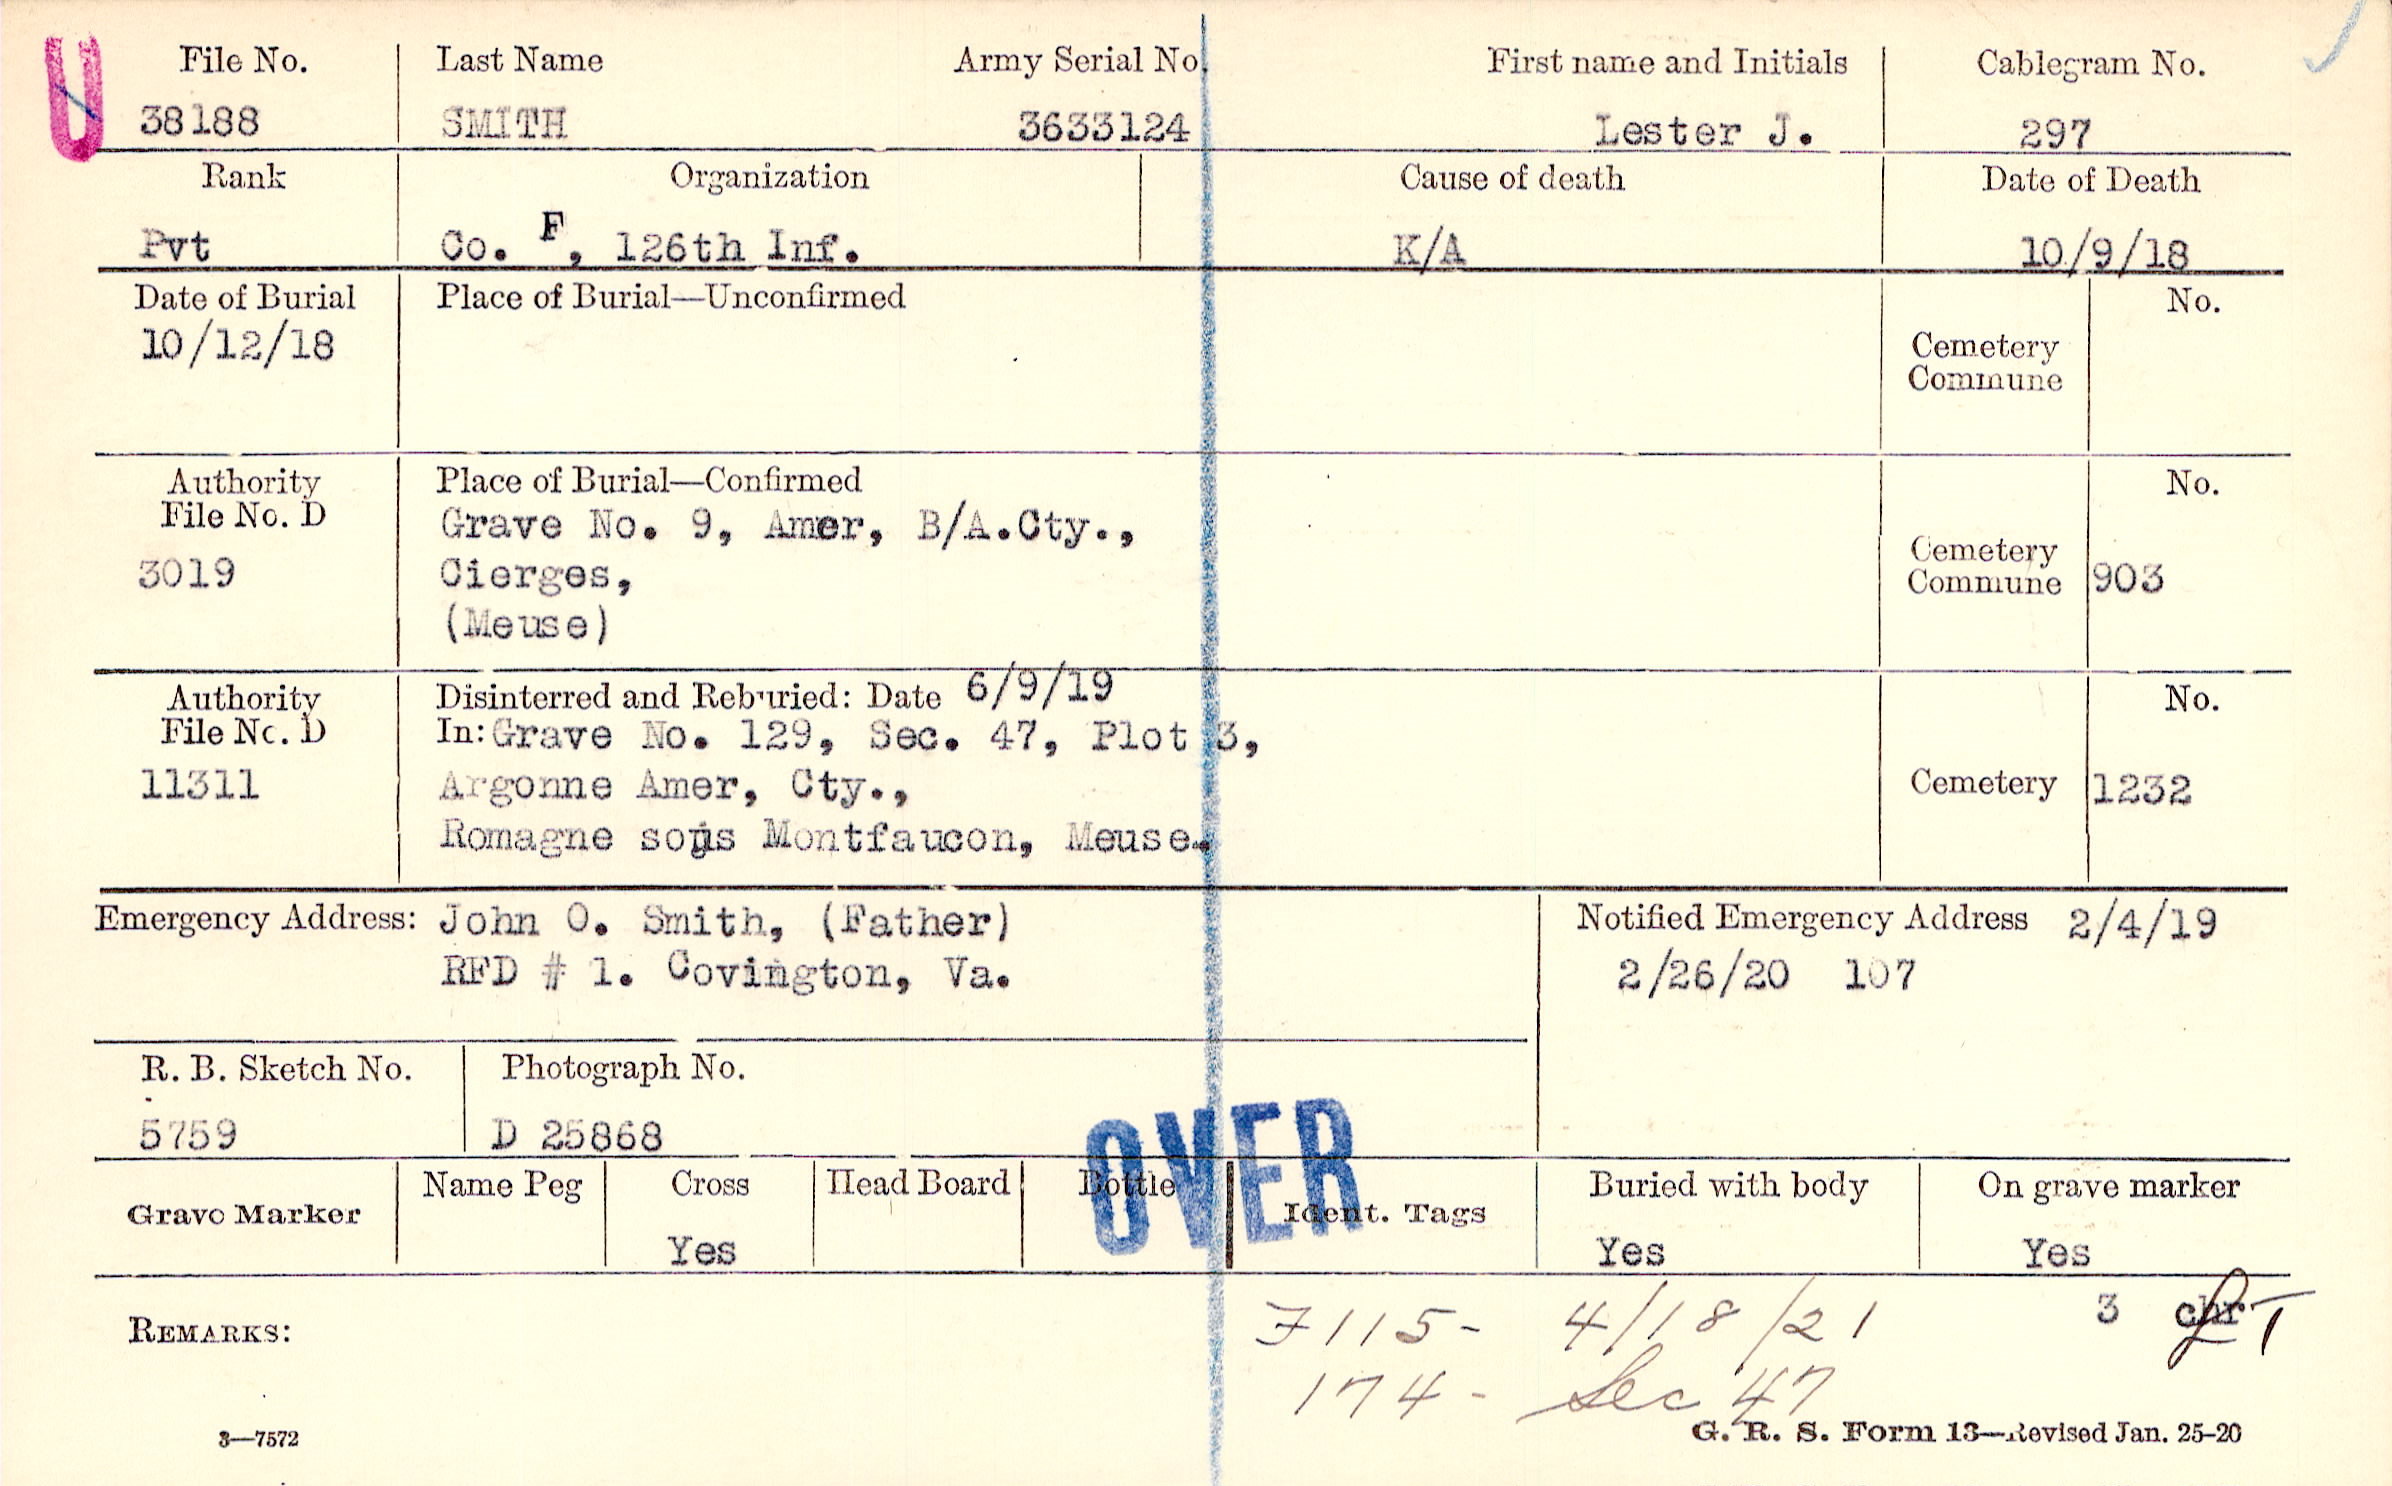 U
File No. Last Name Army Serial No. First name and Initials Cablegram No.
38188 SMITH 3633124 Lester J. 297
Rank Organization Cause of death Date of Death
Pvt Co. F, 126th Inf. K/A 10/9/18
Date of Burial Place of Burial—Unconfirmed No.
10/12/18 Cemetery
Commune
Authority Place of Burial—Confirmed No.
File No. D Grave No. 9, Amer, B/A.Cty.,
3019 Cierges, Cemetery
Commune 903
(Meuse)
Authority Disinterred and Reburied: Date 6/9/19 No.
File No. D In: Grave No. 129, Sec. 47, Plot 3,
11311 Argonne Amer, Cty., Cemetery 1232
Romagne sous Montfaucon, Meuse.
Emergency Address: John O. Smith, (Father) Notified Emergency Address 2/4/19
RFD # 1. Covington, Va. 2/26/20 107
R. B. Sketch No. Photograph No.
5759 D 25868
OVER
Grave Marker Name Peg Cross Head Board Bottle Ident. Tags Buried with body On grave marker
Yes Yes Yes
REMARKS: 7115- 4/18/21 3 chr
174- Sec 47
3—7572 G. R. S. Form 13—Revised Jan. 25-20